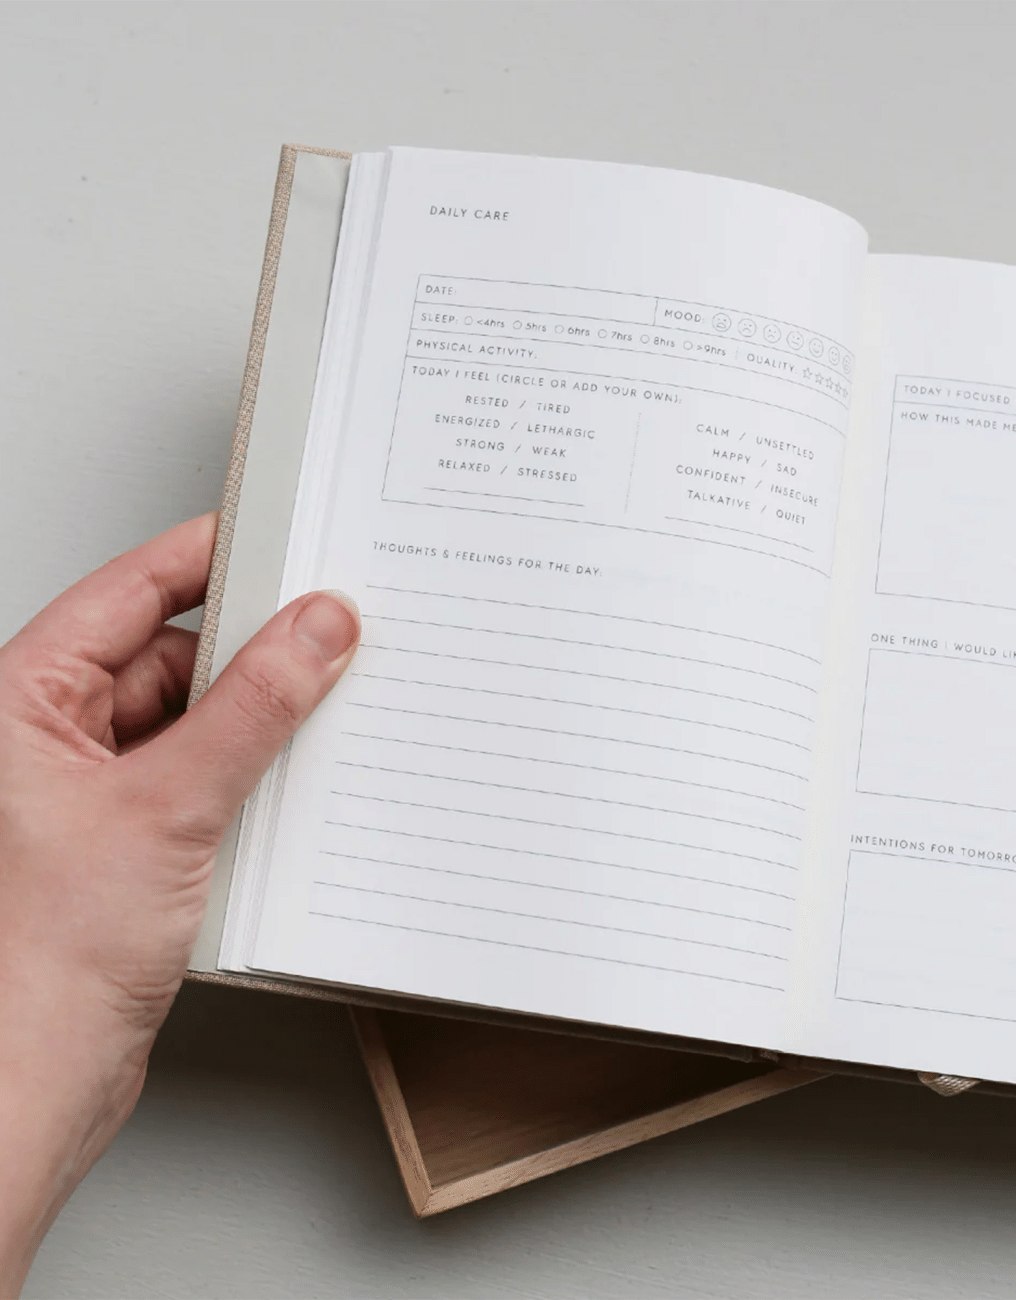 DAILY CARE
DATE:
MOOD:
SLEEP: <4hrs 5hrs 6hrs 7hrs 8hrs >9hrs QUALITY:
PHYSICAL ACTIVITY:
TODAY I FEEL (CIRCLE OR ADD YOUR OWN):
RESTED / TIRED
ENERGIZED / LETHARGIC
STRONG / WEAK
RELAXED / STRESSED
CALM / UNSETTLED
HAPPY / SAD
CONFIDENT / INSECURE
TALKATIVE / QUIET
THOUGHTS & FEELINGS FOR THE DAY:
TODAY I FOCUSED
HOW THIS MADE ME
ONE THING I WOULD LIK
INTENTIONS FOR TOMORRO